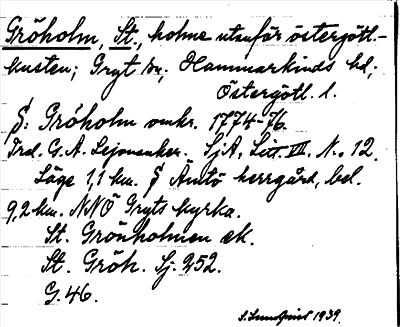 Gröholm, St., holme utanför östergötl.-
kusten; Gryt sn; Hammarkinds hd;
Östergötl. l.
§: Gröholm omkr. 1774-76.
Trd. G. A. Lejonanker. SjA, Litt. VII, N:o 12.
Läge 1,1 km. § Ämtö herrgård, bel.
9,2 km. NNÖ Gryts kyrka.
St. Grönholmen ek.
St. Gröh. Sj. 252.
G. 46.
1939.